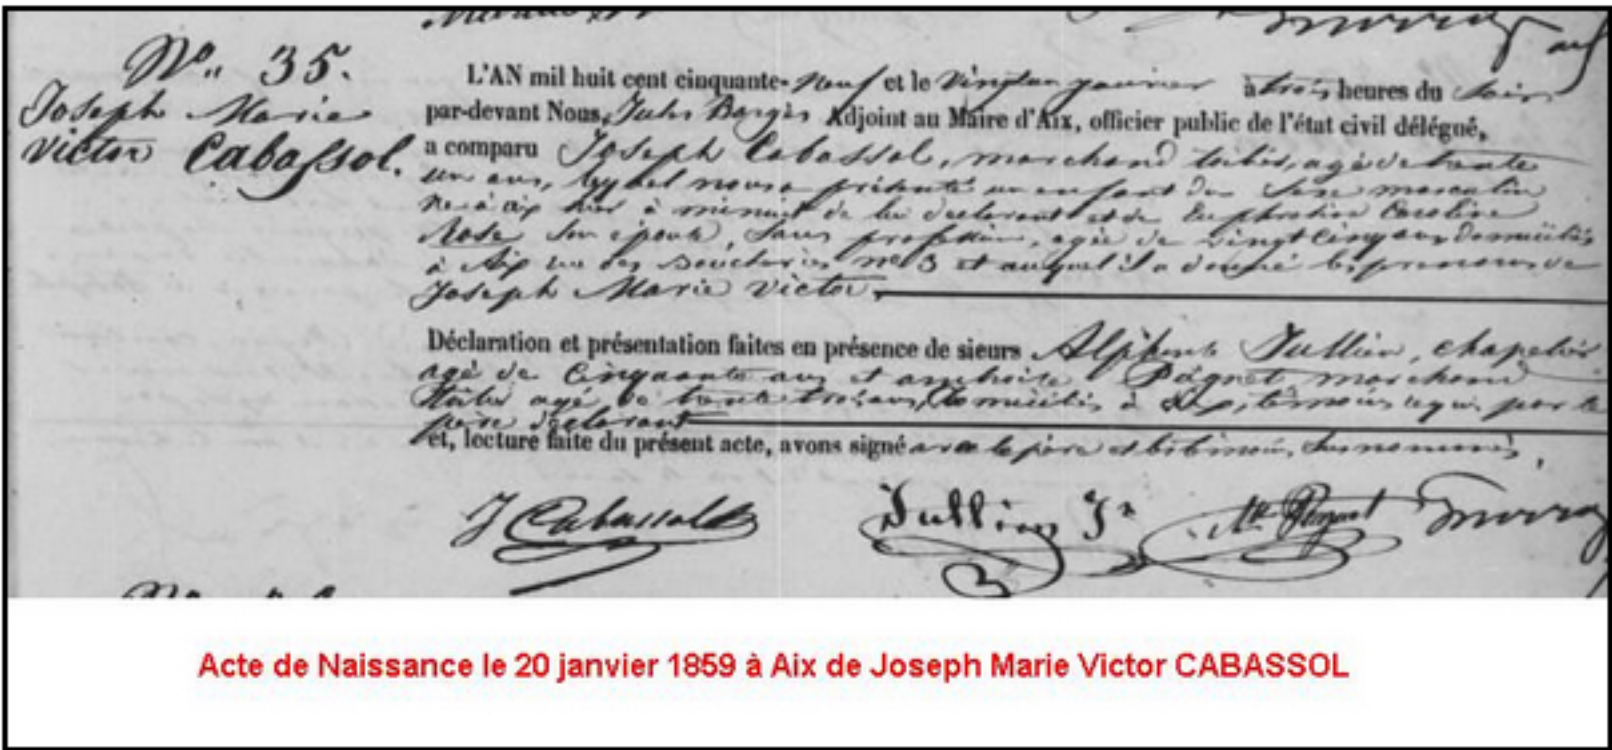 N°. 35.
Joseph Marie
Victor Cabassol.
L'AN mil huit cent cinquante-neuf et le vingt un janvier à trois heures du soir
par-devant Nous, Jules Adjoint au Maire d'Aix, officier public de l'état civil délégué,
a comparu Joseph Cabassol, marchand agé de trente
un ans, lequel nous a présenté un enfant du sexe masculin
né à aix hier à minuit de lui declarant et de Caroline
Rose son épouse, sans profession, agée de vingt cinq ans domiciliés
à Aix rue des Boucheries n° 3 et auquel il a donné les prenoms de
Joseph Marie Victor.
Déclaration et présentation faites en présence de sieurs Alphonse Jullien, chapelier
agé de cinquante ans et marchand
agé de trente trois ans, domiciliés à Aix, témoins par le
père declarant
et, lecture faite du présent acte, avons signé avec le père et les témoins susnommés.
J Cabassol
Jullien
Acte de Naissance le 20 janvier 1859 à Aix de Joseph Marie Victor CABASSOL